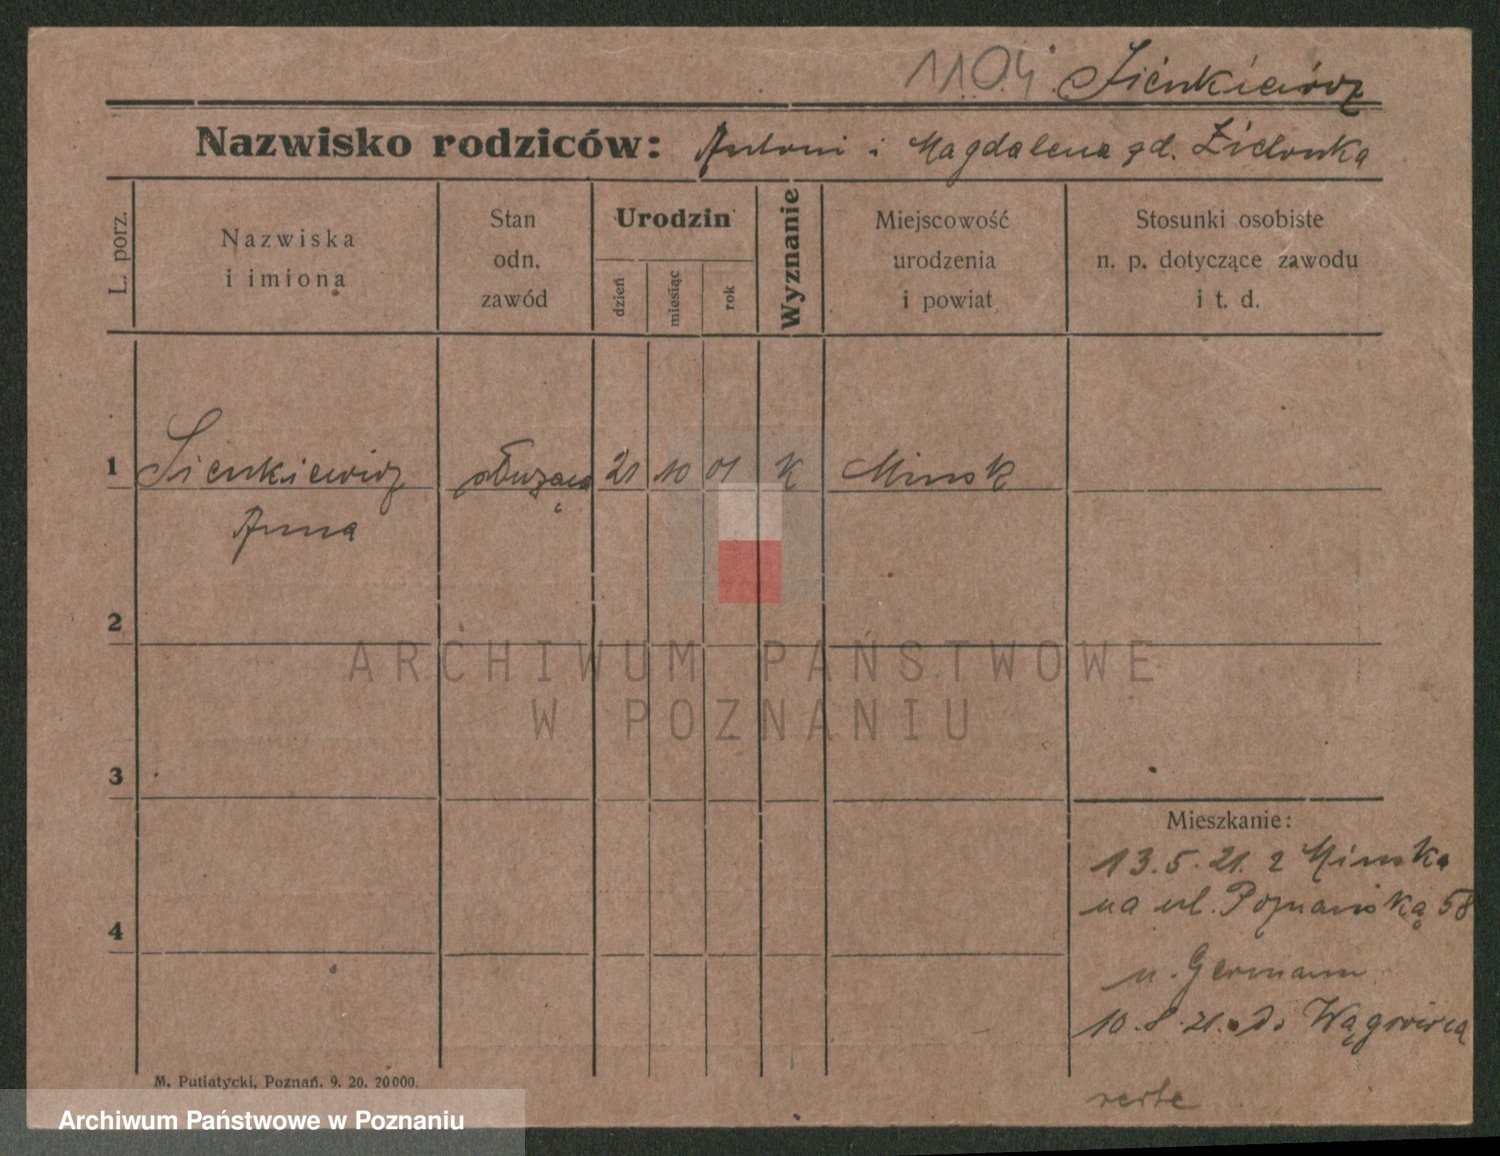 1104 Sienkiewicz
Nazwisko rodziców: Antoni i Magdalena gd. Zielonka
L. porz.
Nazwiska
i imiona
Stan
odn.
zawód
Urodzin
dzień
miesiąc
rok
Wyznanie
Miejscowość
urodzenia
i powiat
Stosunki osobiste
n. p. dotyczące zawodu
i t. d.
1 Sienkiewicz służąca 21 10 01 K Minsk
Anna
2
ARCHIWUM PAŃSTWOWE
W POZNANIU
3
Mieszkanie:
13.5.21. z Minska
na ul. Poznańską 58
4
u. Germann
10.8.21. do Wągrówca
verte
M. Putiatycki, Poznań. 9. 20. 20000.
Archiwum Państwowe w Poznaniu